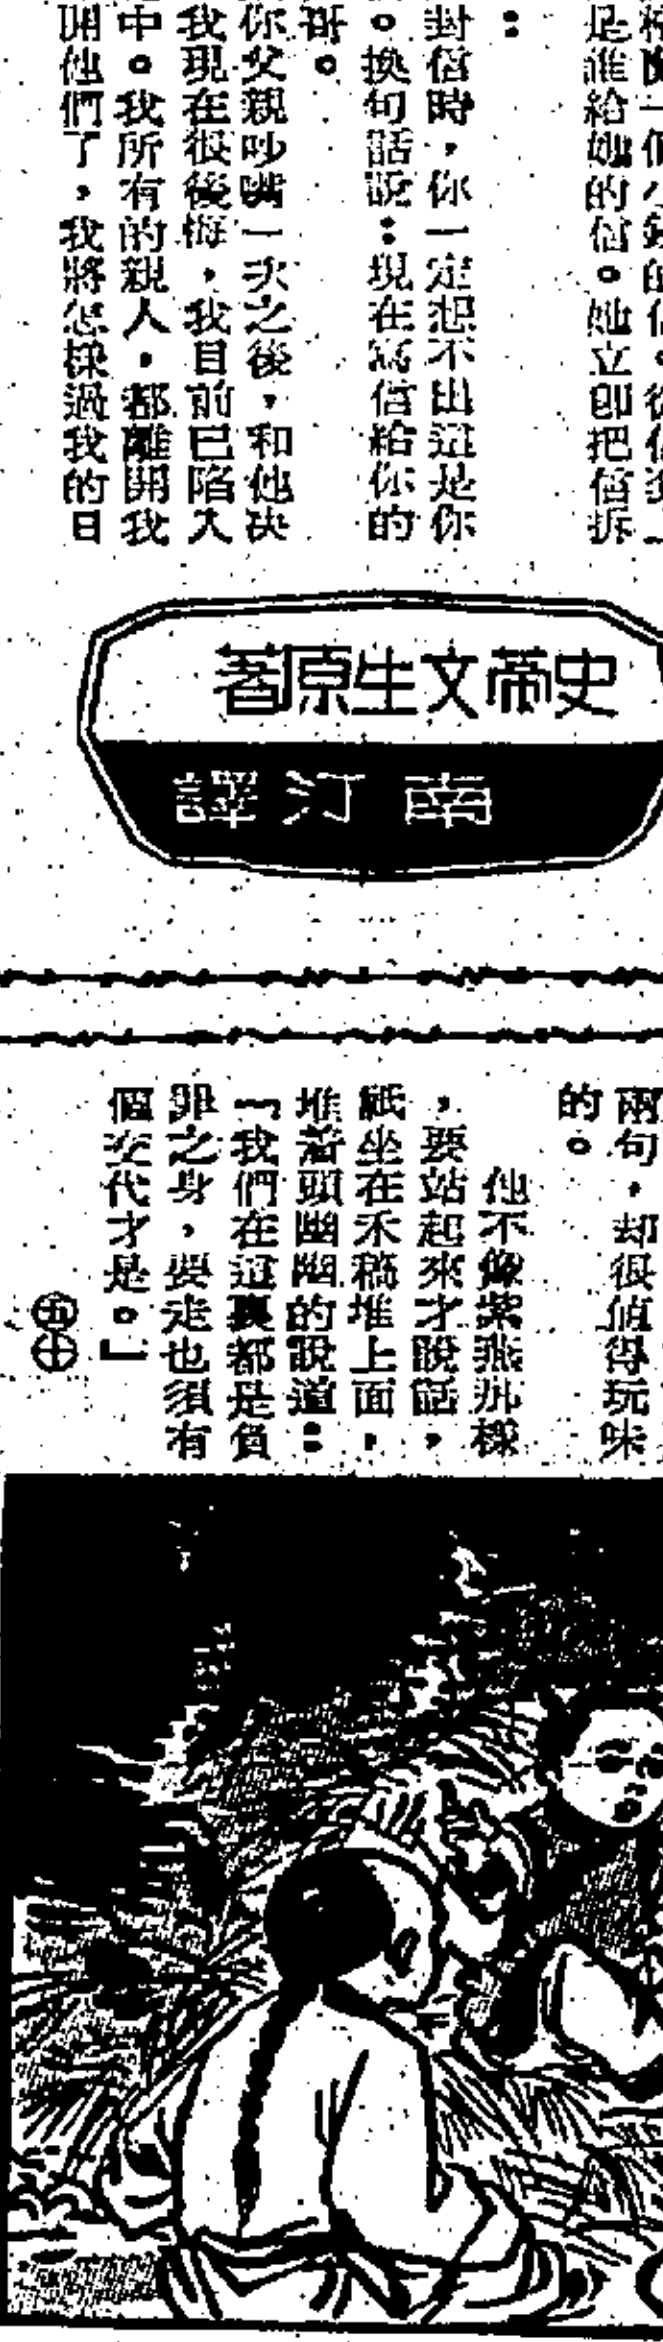 是誰給她的信。她立卽把信拆
：
封信時，你一定想不出這是你
。換句話說：現在寫信給你的
哥。
你父親吵嘴一次之後，和他决
我現在很後悔，我目前已陷入
中。我所有的親人，都離開我
開他們了，我將怎樣過我的日
史蒂文生原著
南汀譯
兩句，却很值得玩味
的。
他不像紫燕那樣
，要站起來才說話，
祇坐在禾稿堆上面，
堆着頭幽幽的說道：
「我們在這裏都是負
罪之身，要走也須有
個交代才是。」
五十